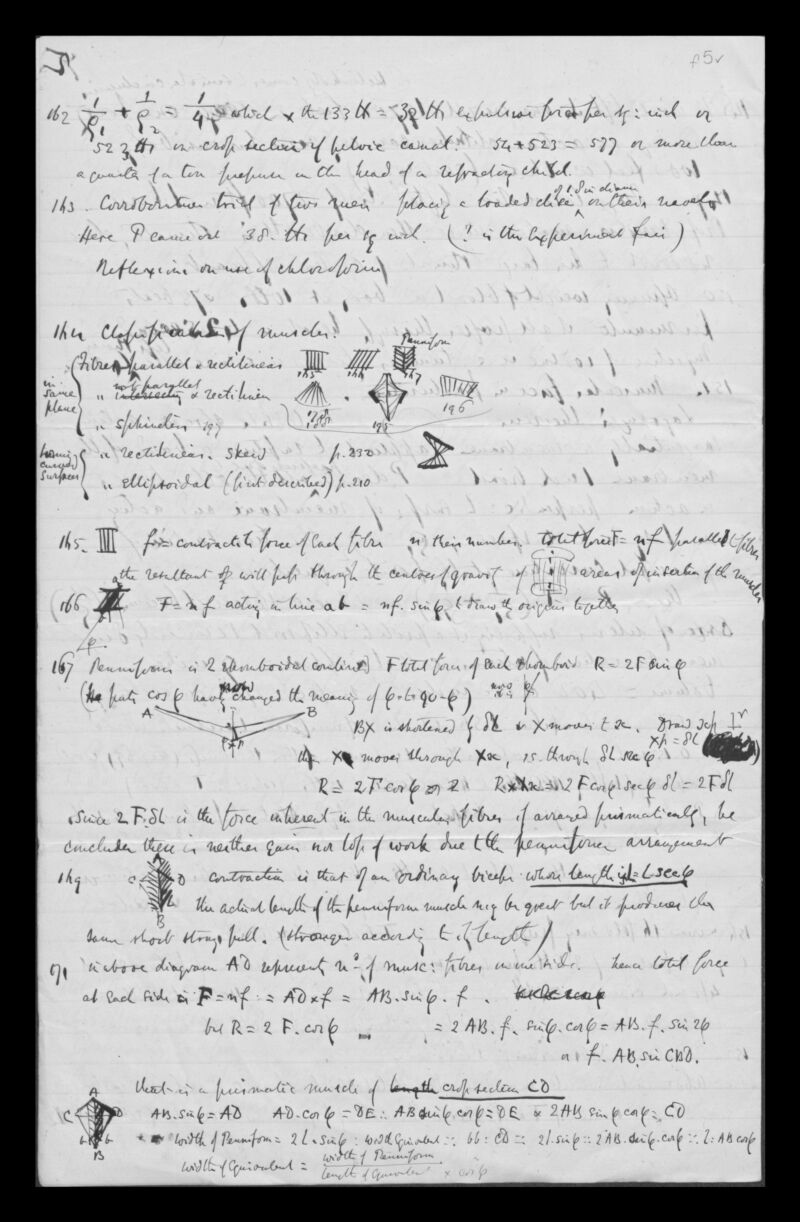 f5v
162 1/ρ1 + 1/ρ2 = 1/4 which × the 133 ℔ = 38 ℔s expulsive force per sq: inch or
523 ℔s on cross section of pelvic canal. 54 + 523 = 577 or more than
a quarter of a ton pressure on the head of a refractory child.
163. Corroborative trial of two men placing a loaded disc of 1.8 in diam on their navels
Here P came out 38. ℔s per sq inch. (? is this experiment fair)
Reflexions on use of chloroform
164 Classification of muscles.
Penniform
in same plane
Fibres parallel & rectilinear 165 166 167
" not parallel & rectilinear
188 195 196
" sphincters
forming curved surfaces
" rectilinear. skew p. 230
" ellipsoidal (first described) p. 210
165. f = contractile force of each fibre n their number. total force F = nf parallel to fibre
the resultant of will pass through the centres of gravity of areas of insertion of the muscles
166 F = nf acting in line ab = nf. sin φ to draw the origins together
φ
167 Penniform is 2 rhomboidal combined F total force of each rhomboid R = 2F sin φ
(He puts cos φ having now changed the meaning of φ to 90 - φ)
A B
BX is shortened by δL & X moves to x. Draw xp
Xp = δL
then X moves through Xx, is through δL sec φ
R = 2F cos φ R × Xx = 2F cos φ sec φ δL = 2F δL
Since 2F.δL is the force inherent in the muscular fibres if arranged prismatically, he
concludes there is neither gain nor loss of work due to the penniform arrangement
169 A C D B contraction is that of an ordinary biceps whose length is l = L sec φ
the actual length of the penniform muscle may be great but it produces the
same short strong pull. (stronger according to its length)
171 in above diagram AD represents no. of musc: fibres in one side. hence total force
at each side is F = nf = AD × f = AB. sin φ . f .
but R = 2 F. cos φ = 2 AB. f. sin φ. cos φ = AB. f. sin 2φ
or f. AB. sin CBD.
that is a prismatic muscle of length cross section CD
A C D B b b AB. sin φ = AD AD. cos φ = DE ∴ AB sin φ. cos φ = DE & 2AB sin φ cos φ = CD
width of Penniform = 2L. sin φ : width Equivalent :: bb : CD :: 2L. sin φ : 2AB. sin φ. cos φ :: L : AB cos φ
width of Equivalent = width of Penniform / length of Equivalent × cos φ